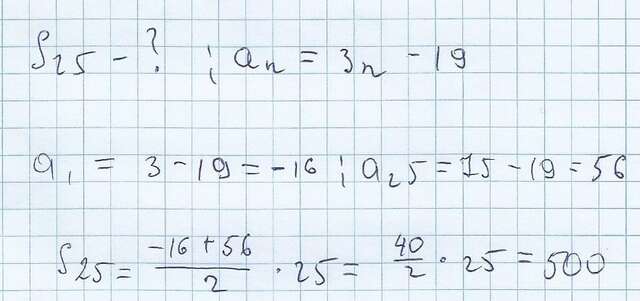 S₂₅ - ? ; aₙ = 3n - 19
a₁ = 3 - 19 = -16 ; a₂₅ = 75 - 19 = 56
S₂₅ = (-16 + 56)/2 · 25 = 40/2 · 25 = 500